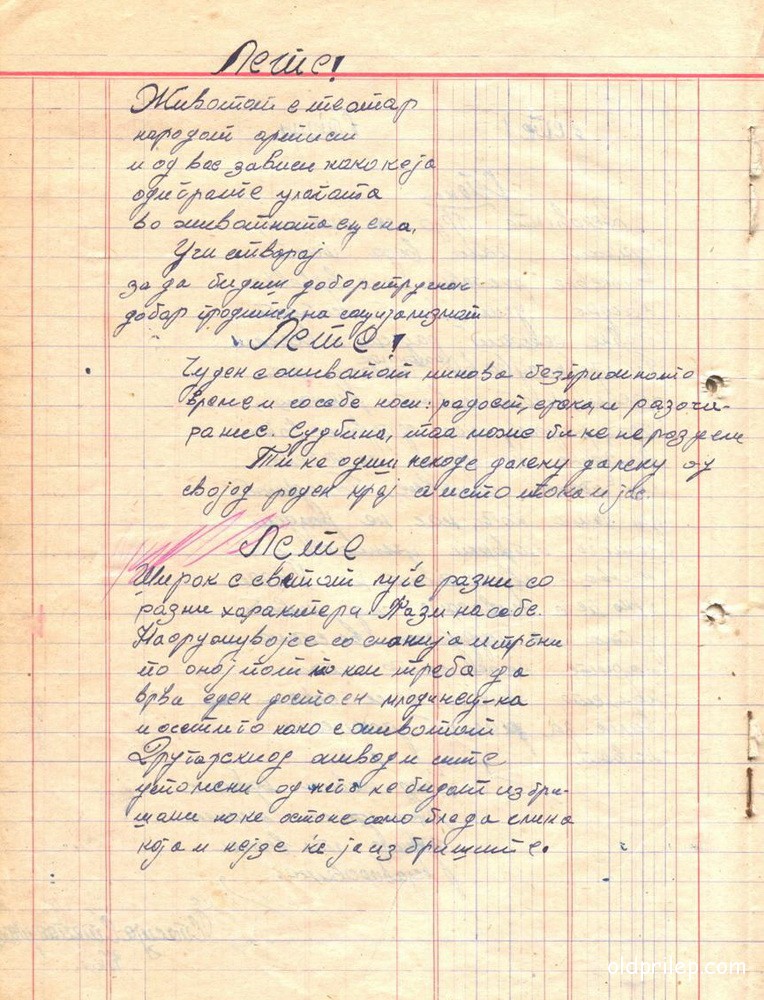 Пеште!
Животот е театар
народот артисти
и од вас зависи како која
одиграте улогата
во животната сцена,
Учи створај
за да бидиш добар стручнак
добар градител на социјализмот
Пеште!
Чуден е животот минова безгрижното
време и со себе носи: радост, среќа, и разоча-
рание. Судбина, таа може би ќе не раздели
Ти ќе одиш некаде далеку далеку од
својод роден крај а исто така и јас.
Пеште
Широк е сватот луѓе разни со
разни характери. Пази на себе.
Наоружувојсе со знанија и тргни
по оној пот по кои треба да
врви еден достоен млодинец-ка
и осети то како е животот
Другарскиод живод и сите
успомени од него ќе бидат избри-
шани но ќе остане само блада слика
која и нејзе ќе ја избришите.
oldprilep.com